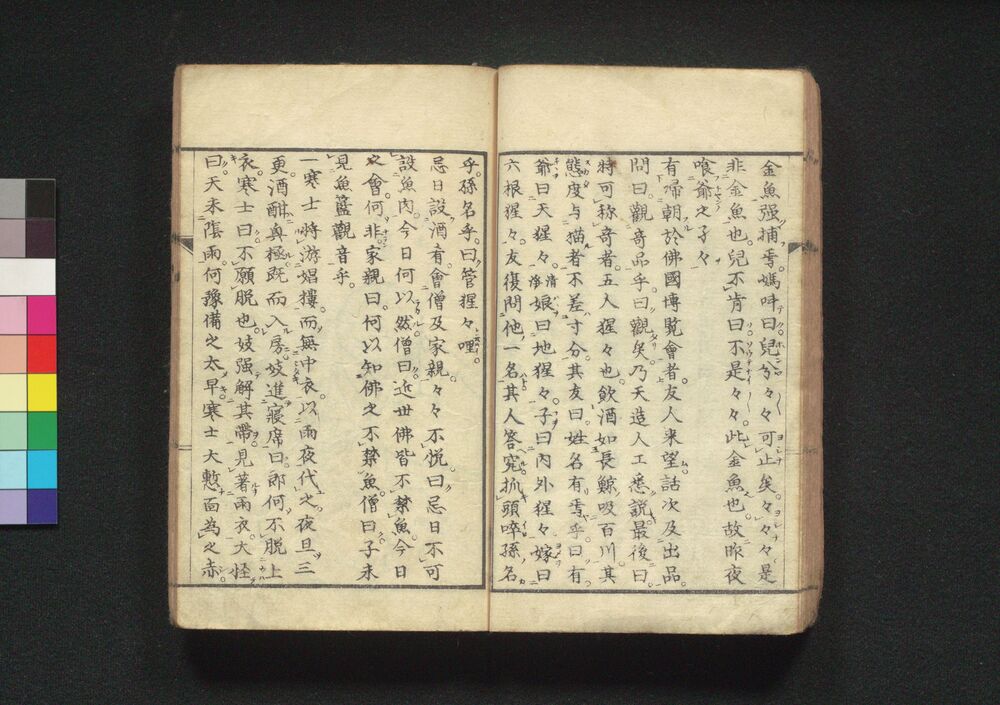 金魚强捕焉。媽呼曰。兒分々々可止矣。々々々是
非金魚也。兒不肯曰不是々々。此金魚也。故昨夜
喰爺之子々
有帰朝於佛國博覧會者。友人来望。話次及出品。
問曰。觀奇品乎。曰觀矣。乃天造人工悉説。最後曰。
特可称奇者。五人猩々也。飲酒如長鯨吸百川。其
態度与猫者不差寸分。其友曰。姓名有焉乎。曰有。
爺曰天猩々。清淨娘曰地猩々。子曰内外猩々。嫁曰
六根猩々。友復問他一名。其人答究。抓頭啐。孫名
乎。孫名乎。曰管猩々哩。
忌日設酒肴。會僧及家親。々々不悦。曰忌日不可
設魚肉。今日何以然。僧曰。近世佛皆不禁魚。今日
之會何非家親。曰。何以知佛之不禁魚。僧曰子未
見魚籃觀音乎。
一寒士将游娼摟。而無中衣。以雨夜代之。夜且三
更。酒酣興極。既而入房。妓進寢席曰。郎何不脱上
衣。寒士曰。不願脱也。妓强解其帶。見著雨衣。大怪
曰。天未陰雨。何豫備之太早。寒士大慙面為之赤。